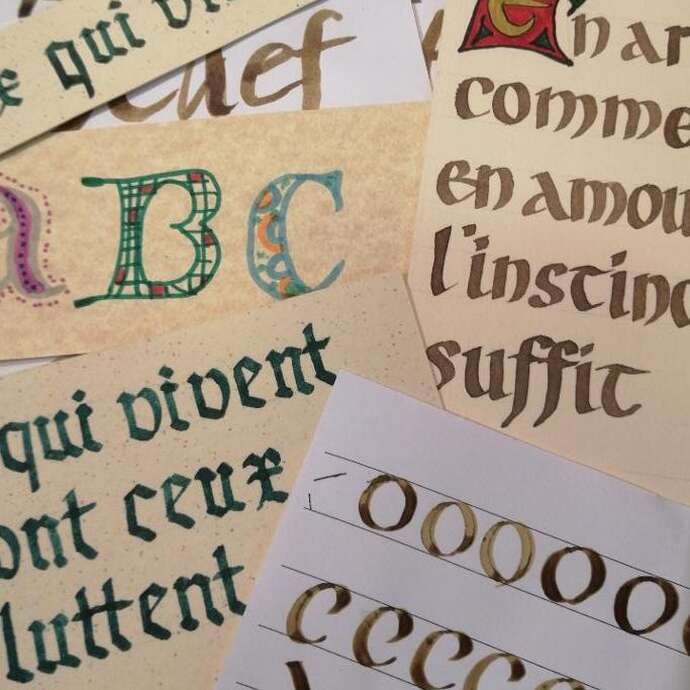 qui vi
aef
a B C
En ar
comme
en amou
l'instinc
suffit
qui vivent
ont ceux
luttent
o o o o o o
c c c c c c